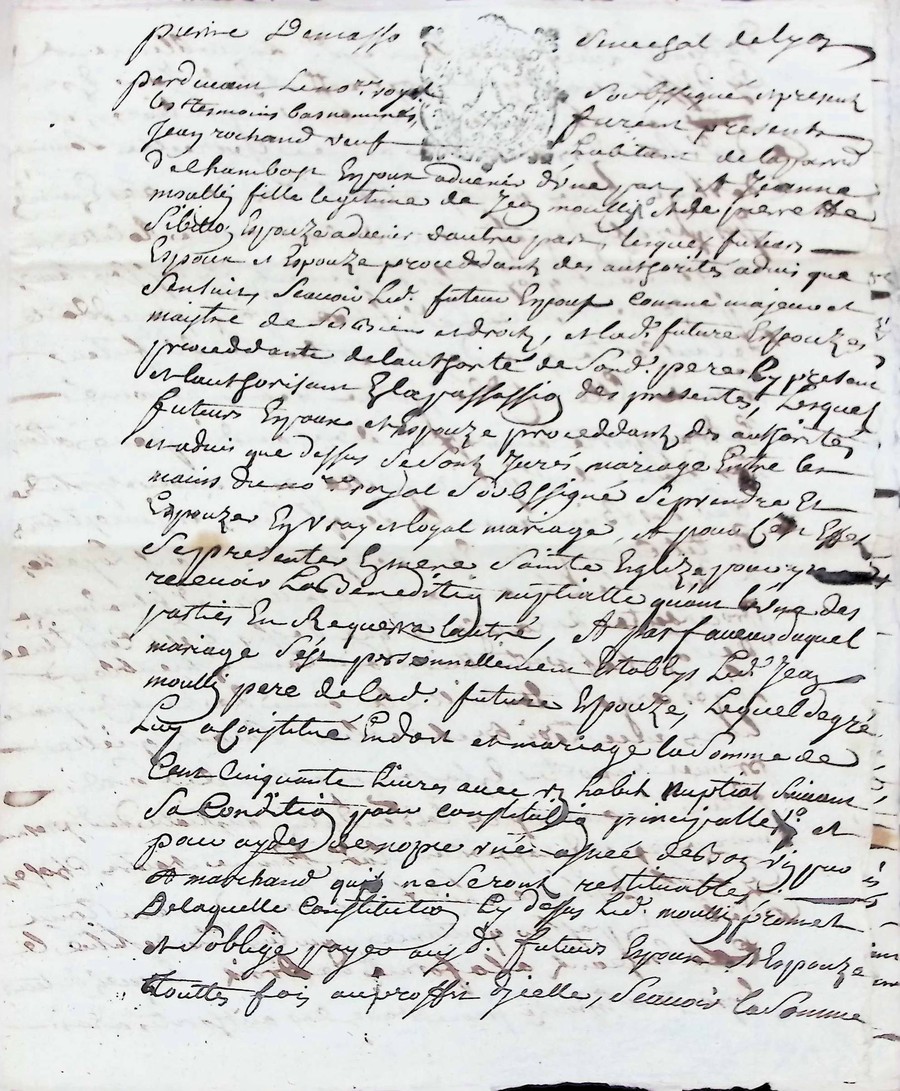 pierre Demasso Senechal de lyon
pardevant Le nore. royal soubssigné et present
les tesmoins bas nommés, furent presents
Jean rochand veuf habitant de la parr
D'elhambost Espoux advenir d'une part, Et Jeanne
moully fille legitime de Jean moully Et de pierrette
Sibille, Espouze advenir d'autre part, lesquels futurs
Espoux et Espouze proceddants des authorités advis que
sensuit, Scavoir Led. futeur Espoux comme majeur et
maistre de ses Biens et droits, et lad. future Espouze,
proceddante de lauthorité de Sond. pere icy present
et lauthorisant En la passassion des presentes, Lesquels
futeurs Espoux et Espouze proceddants des authorités
et advis que dessus se sont Jurés mariage Entre les
mains du nore. royal soubssigné se prendre Et
Espouzer En vray et loyal mariage, Et pour cest Effet
se presenter En mere Sainte Eglize pour y
recevoir La Benediction nuptialle quant l'une des
parties En Requerra lautre, Et par faveur duquel
mariage s'est personnellement Estably Led. Jean
moully pere de lad. future Espouze, Lequel de gré
Luy a Constitué En dot et mariage la somme de
Cent Cinquante Livres avec un habit nuptial suivant
sa Condition pour constitution principalle, et
pour aydes de nopce une asnée de bon vin pur
Et marchand qui ne seront restituable,
De laquelle Constitution Cy dessus Led. moully promet
et s'oblige payer ausd. futeurs Espoux Et Espouze
touttes fois au proffit d'icelle, Scavoir la Somme